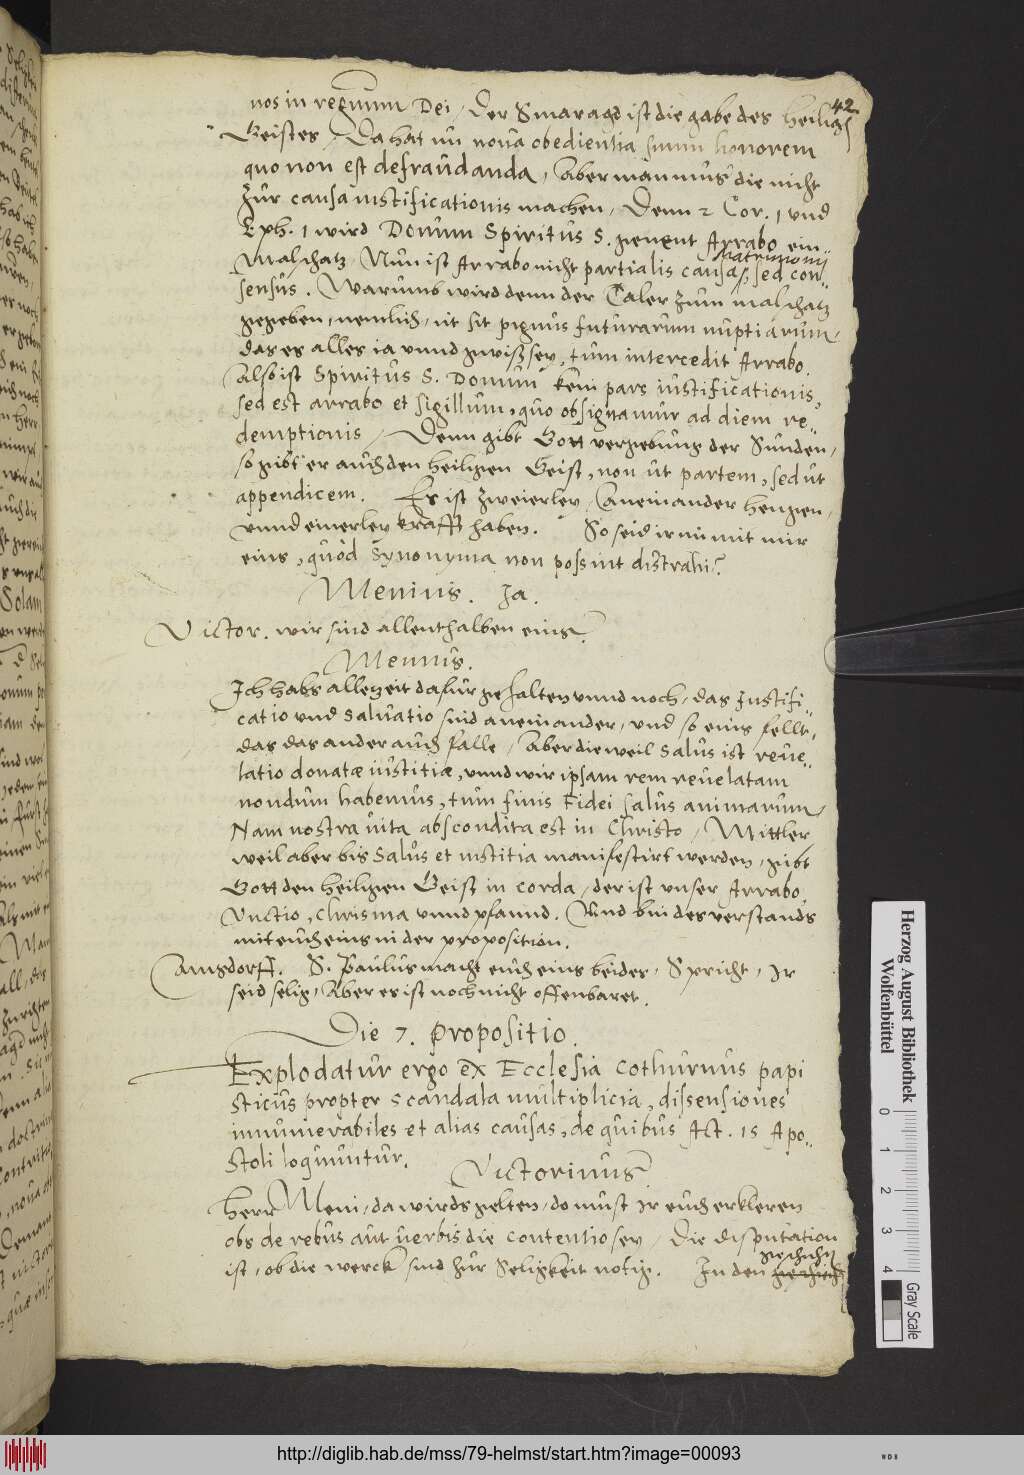 42
nos in regnum Dei, Der Smaragd ist die gabe des heilig
Geistes, Da hat nu nova obedientia suum honorem
quo non est defraudanda, Aber man mus die nicht
zur causa iustificationis machen, Denn 2 Cor. 1 und
Eph. 1 wird Donum Spiritus S. genent Arrabo ein-
Matrimonij
Malschatz, Nun ist Arrabo nicht partialis causa, sed con-
sensus. Warumb wird denn der Taler zum malschatz
gegeben, nemlich, ut sit pignus futurarum nuptiarum,
das es alles ia unnd gewiß sey, tum intercedit Arrabo.
Also ist Spiritus S. Donum kein pars iustificationis,
sed est arrabo et sigillum, quo obsignamur ad diem re-
demptionis, Denn gibt Gott vergebung der Sunden,
so gibt er auch den heiligen Geist, non ut partem, sed ut
appendicem. Es ist zweierley, aneinander hengen,
unnd einerley krafft haben. So seid ir nu mit mir
eins, quod Synonyma non possint distrahi?
Menius. Ja.
Victor. wir sind allenthalben eins.
Menius.
Ich habs allezeit dafur gehalten unnd noch, das Justifi-
catio und salvatio sind aneinander, und so eins fellt,
das das ander auch falle, Aber dieweil salus ist reve-
latio donatæ iustitiæ, unnd wir ipsam rem revelatam
nondum habemus, tum finis Fidei salus animarum,
Nam nostra vita abscondita est in Christo, Mittler
weil aber bis salus et iustitia manifestirt werden, gibt
Gott den heiligen Geist in corda, der ist unser Arrabo,
Unctio, Chrisma unnd pfannd. Und bin des verstands
mit euch eins in der proposition.
Amsdorff. S. Paulus macht euch eins beides, Spricht, Ir
seid selig, Aber es ist noch nicht offenbaret.
Die 7. Propositio.
Explodatur ergo ex Ecclesia Cothurnus papi
sticus propter scandala multiplicia, dissensiones
innumerabiles et alias causas, de quibus Act. 15 Apo-
stoli loquuntur.
Victorinus.
Herr Meni, da wirds gelten, do must ir euch erkleren
obs de rebus aut verbis die contentio sey, Die disputation
geschicht
ist, ob die werck sind zur Seligkeit notig. In den
Herzog August Bibliothek
Wolfenbüttel
0 1 2 3 4
Gray Scale
http://diglib.hab.de/mss/79-helmst/start.htm?image=00093